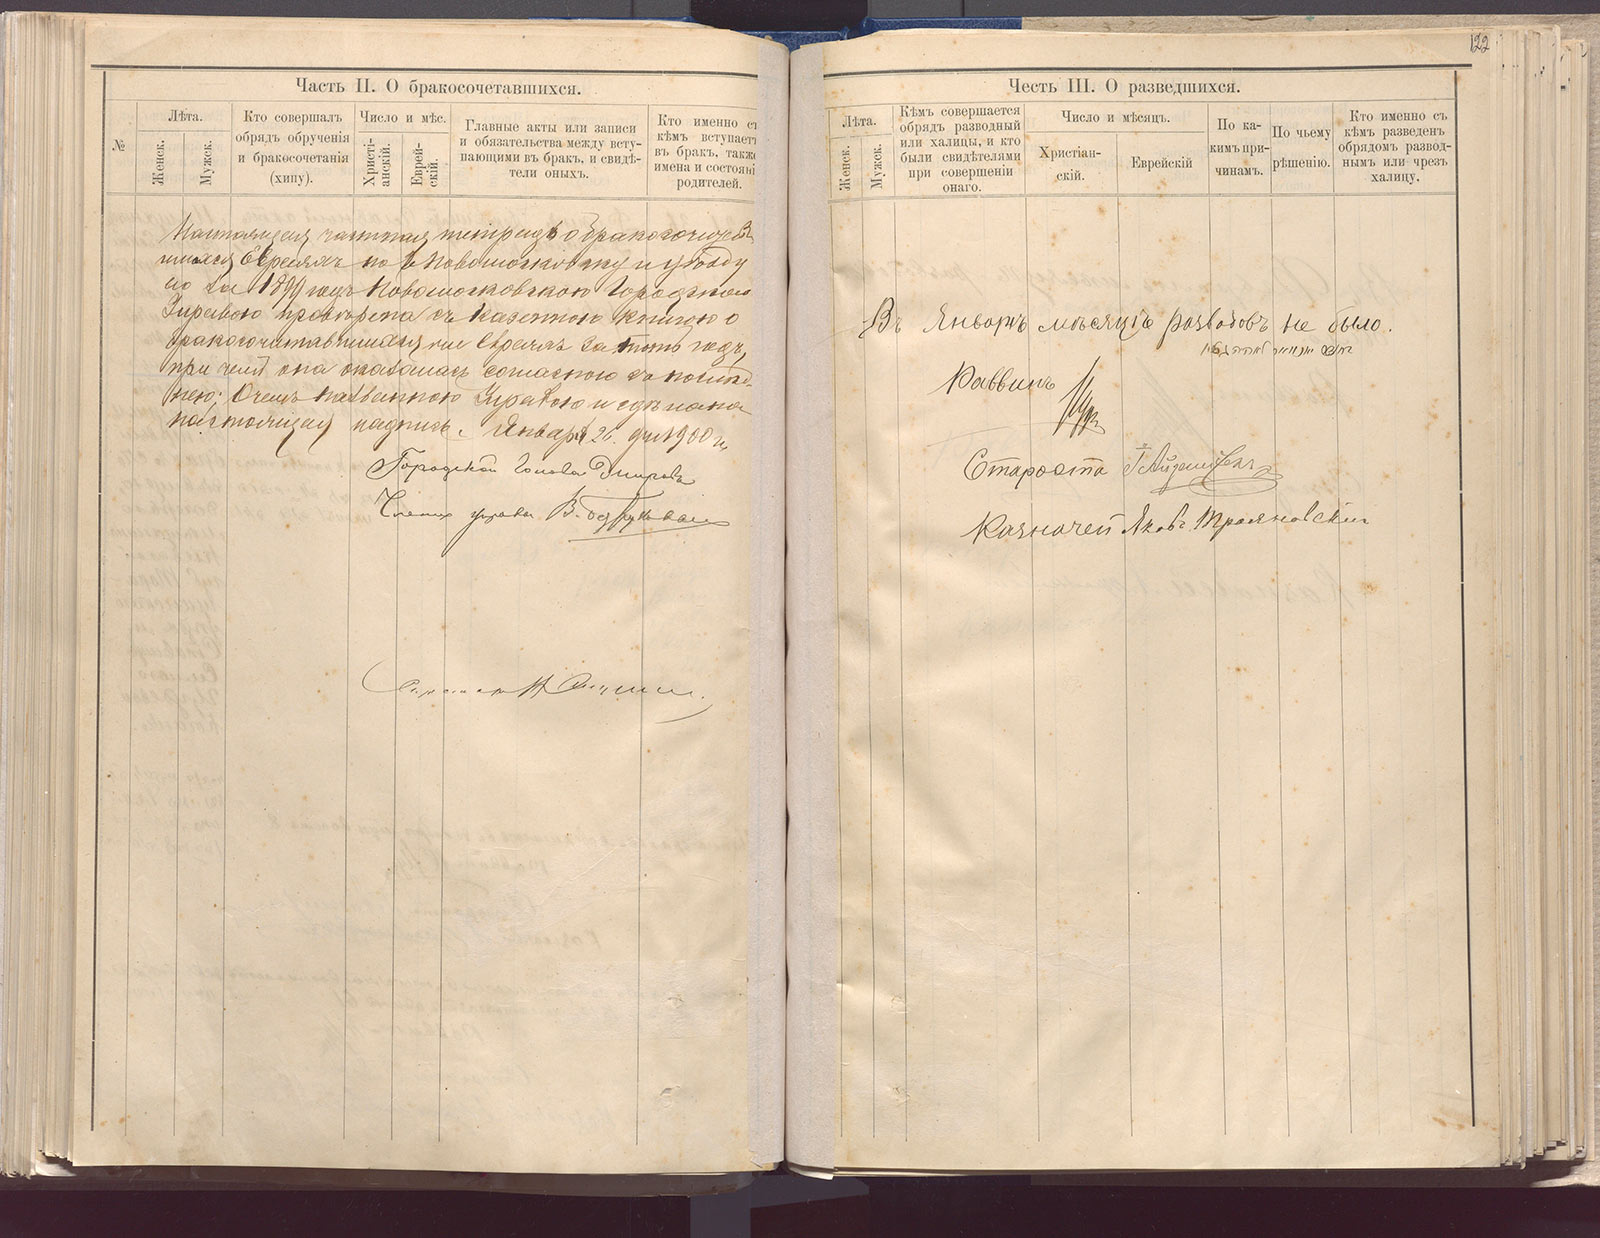 Часть II. О бракосочетавшихся.
№
Лѣта.
Женск.
Мужск.
Кто совершалъ
обрядъ обрученія
и бракосочетанія
(хипу).
Число и мѣс.
Христі-
анскій.
Еврей-
скій.
Главные акты или записи
и обязательства между всту-
пающими въ бракъ, и свидѣ-
тели оныхъ.
Кто именно съ
кѣмъ вступаетъ
въ бракъ, также
имена и состояні
родителей.
Настоящая частная тетрадь о бракосочетав
шихся Евреяхъ по г. Новомосковску и уѣзду
за 1899 годъ Новомосковскою Городскою
Управою провѣрена съ казенною книгою о
бракосочетавшихся евреяхъ за тотъ годъ,
при чемъ она оказалась согласною съ послѣд-
нею; о чемъ названною Управою и сдѣлана
настоящая надпись. Января 26 дня 1900 г.
Городской Голова
Членъ управы В.
122
Честь III. О разведшихся.
Лѣта.
Женск.
Мужск.
Кѣмъ совершается
обрядъ разводный
или халицы, и кто
были свидѣтелями
при совершеніи
онаго.
Число и мѣсяцъ.
Христіан-
скій.
Еврейскій
По ка-
кимъ при-
чинамъ.
По чьему
рѣшенію.
Кто именно съ
кѣмъ разведенъ
обрядомъ развод-
нымъ или чрезъ
халицу.
Въ Январѣ мѣсяцѣ разводовъ не было.
Раввинъ
Староста
Казначей Яковъ Трояновскій